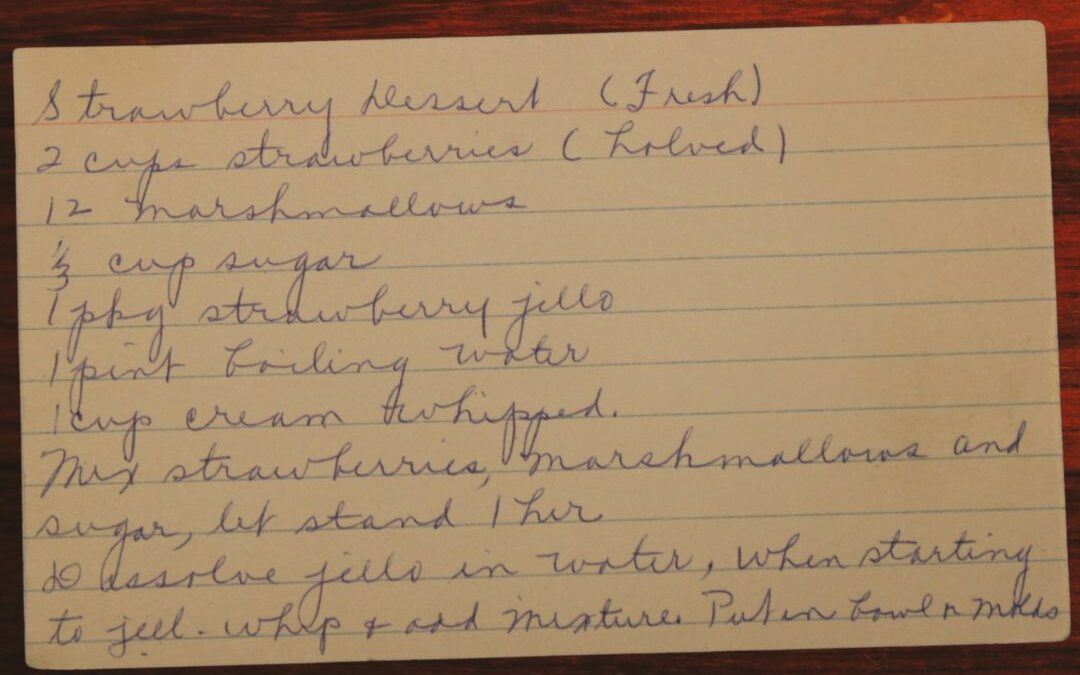 Strawberry Dessert (Fresh)
2 cups strawberries (halved)
12 marshmallows
1/3 cup sugar
1 pkg strawberry jello
1 pint boiling water
1 cup cream whipped.
Mix strawberries, marshmallows and
sugar, let stand 1 hr
Dissolve jello in water, when starting
to jell. whip & add mixture. Put in bowl n molds